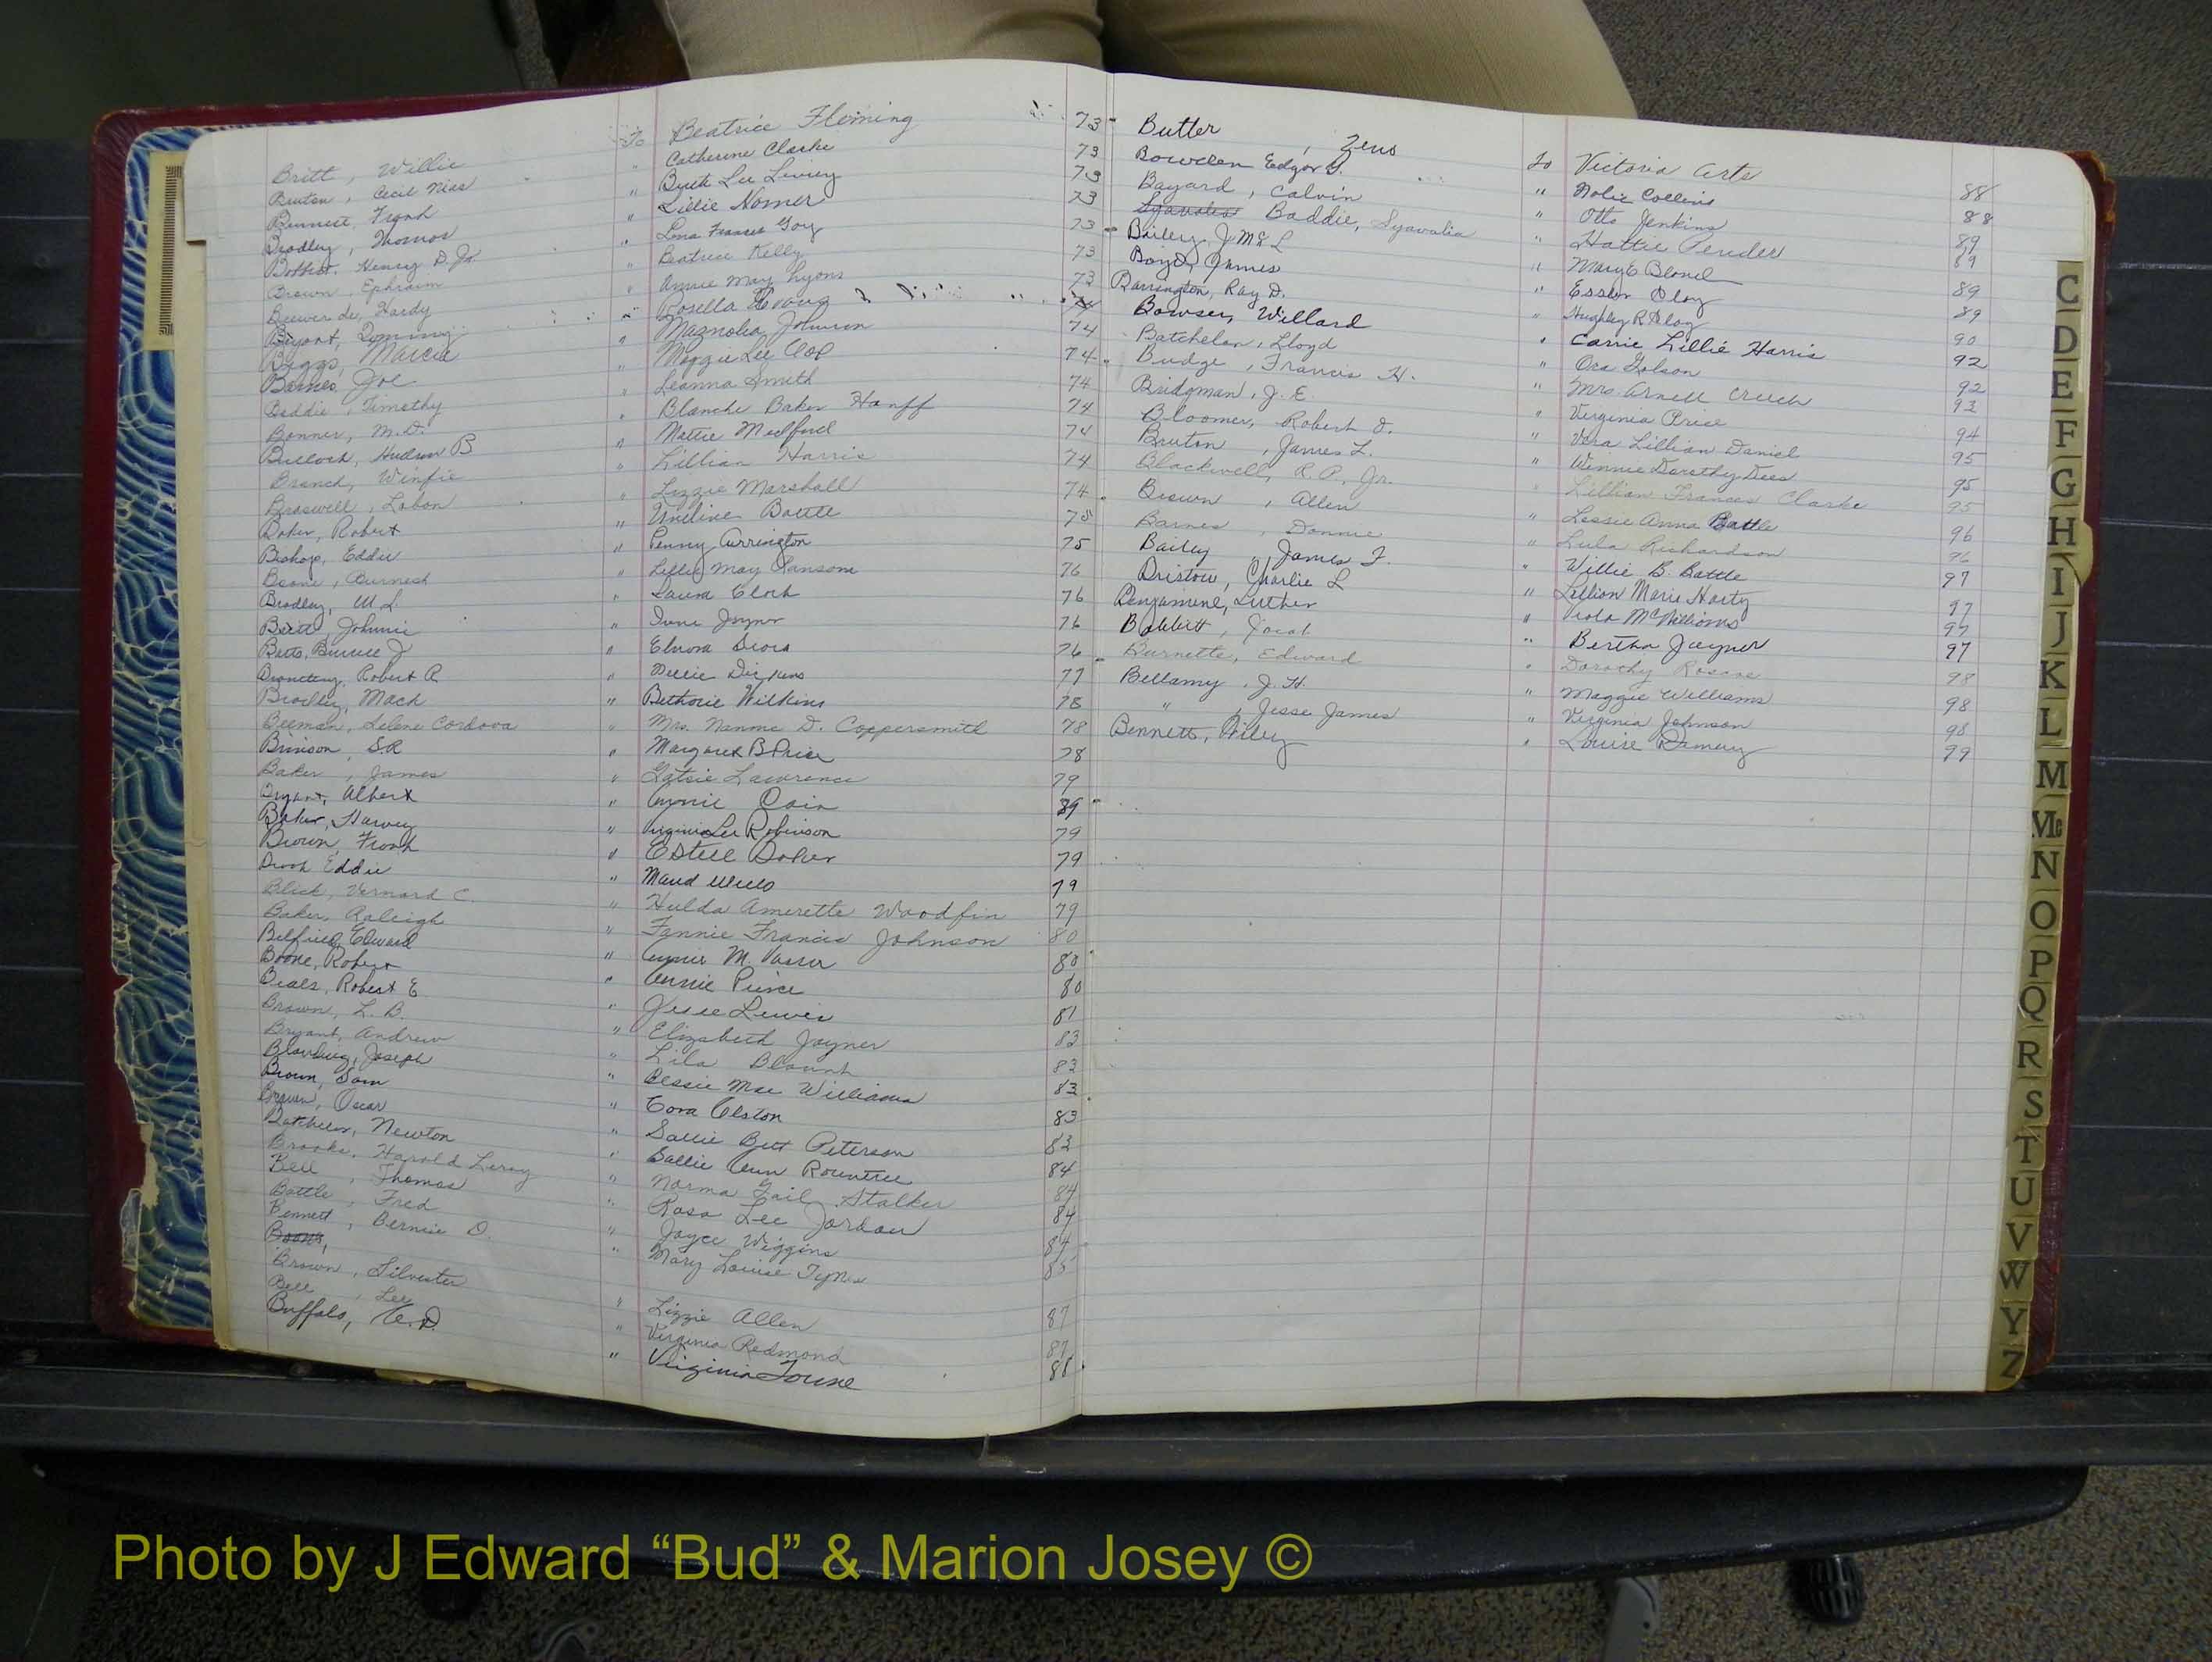 Britt, Willie To Beatrice Fleming 73
Bruton, Cecil " Catherine Clarke 73
Frank " Ruth Lee 73
Bradley, Thomas " Lillie 73
Henry D. Jr. " Lena Frances 73
Brown, Ephraim " Beatrice Kelly 73
Hardy " Annie May Lyons 73
Bryant, " Rosella 74
Biggs, Marcia " Magnolia Johnson 74
Barnes, Joe " Maggie Lee 74
Baddie, Timothy " Leanna Smith 74
Bonner, M.D. " Blanche Baker Hanff 74
Bulloch, Hudson B " Mattie Medford 74
Branch, Winfie " Lillian Harris 74
Braswell, Labon " Lizzie Marshall 74
Baker, Robert " Battle 75
Bishop, Eddie " Penny Arrington 75
Boone, Burnest " Lillie May Ransome 76
Bradley, W L. " Laura Clark 76
Britt, Johnnie " Joyner 76
Batts, Bunice J " Elnora 76
Robert R " Dickens 77
Bradley, Mack " Wilkins 78
Beeman, Selene Cordova " Mrs. Nannie D. Coppersmith 78
Brinson, S R " Margaret B Price 78
Baker, James " Gatsie Lawrence 79
Bryant, Albert " Annie Cain 89
Baker, Harvey " Virginia Lee Robinson 79
Brown, Frank " Estell Baker 79
Eddie " Maud 79
Blick, Vernard C. " Hulda Amerette Woodfin 79
Baker, Raleigh " Fannie Francis Johnson 80
Belfield, Edward " M. Vasser 80
Boone, Robert " Annie Pierce 80
Beals, Robert E " Jesse Lewis 81
Brown, L. B. " Elizabeth Joyner 83
Bryant, Andrew " Lila Blount 83
Joseph " Bessie Mae Williams 83
Brown, Sam " Cora Alston 83
Brown, Oscar " Sallie Bett Peterson 83
Batchelor, Newton " Sallie Ann Rountree 84
Brooks, Harold Leroy " Norma Gail Stalker 84
Bell, Thomas " Rosa Lee Jordan 84
Battle, Fred " Joyce Wiggins 84
Bennett, Bernice D. " Mary Louise Tyne 85
Brown, Silvester " Lizzie Allen 87
Bell, Lee " Virginia Redmond 87
Buffalo, " Virginia 88
Butler, Zeus To Victoria Arts 88
Bowden Edgar " Collins 88
Bayard, Calvin " Otto Jenkins 89
Baddie, Syavalia " Hattie Pender 89
Bailey, J M & L " Mary E Blond
Boyd, James " 89
Barrington, Ray D. " 89
Bowser, Willard " Carrie Lillie Harris 90
Batchelor, Lloyd " Ora Golson 92
Budge, Francis H. " Mrs. Arnell Creech 92
Bridgman, J. E. " Virginia Price 93
Bloomer, Robert J. " Vera Lillian Daniel 94
Bruton, James L. " Winnie Dorothy Dees 95
Blackwell, R. P., Jr. " Lillian Frances Clarke 95
Brown, Allen " Lessie Anna Battle 95
Barnes, Donnie " Lula Richardson 96
Bailey, James F. " Willie B. Battle 96
Bristow, Charlie L " Lillian Marie Harty 97
Benjamine, Luther " Viola McWilliams 97
Babbitt, Jacob " Bertha Joyner 97
Burnette, Edward " Dorothy 97
Bellamy, J. H. " Maggie Williams 98
" , Jesse James " Virginia Johnson 98
Bennett, Wiley " Louise 98
99
C
D
E
F
G
H
I
J
K
L
M
Mc
N
O
P
Q
R
S
T
U
V
W
Y
Z
Photo by J Edward “Bud” & Marion Josey ©